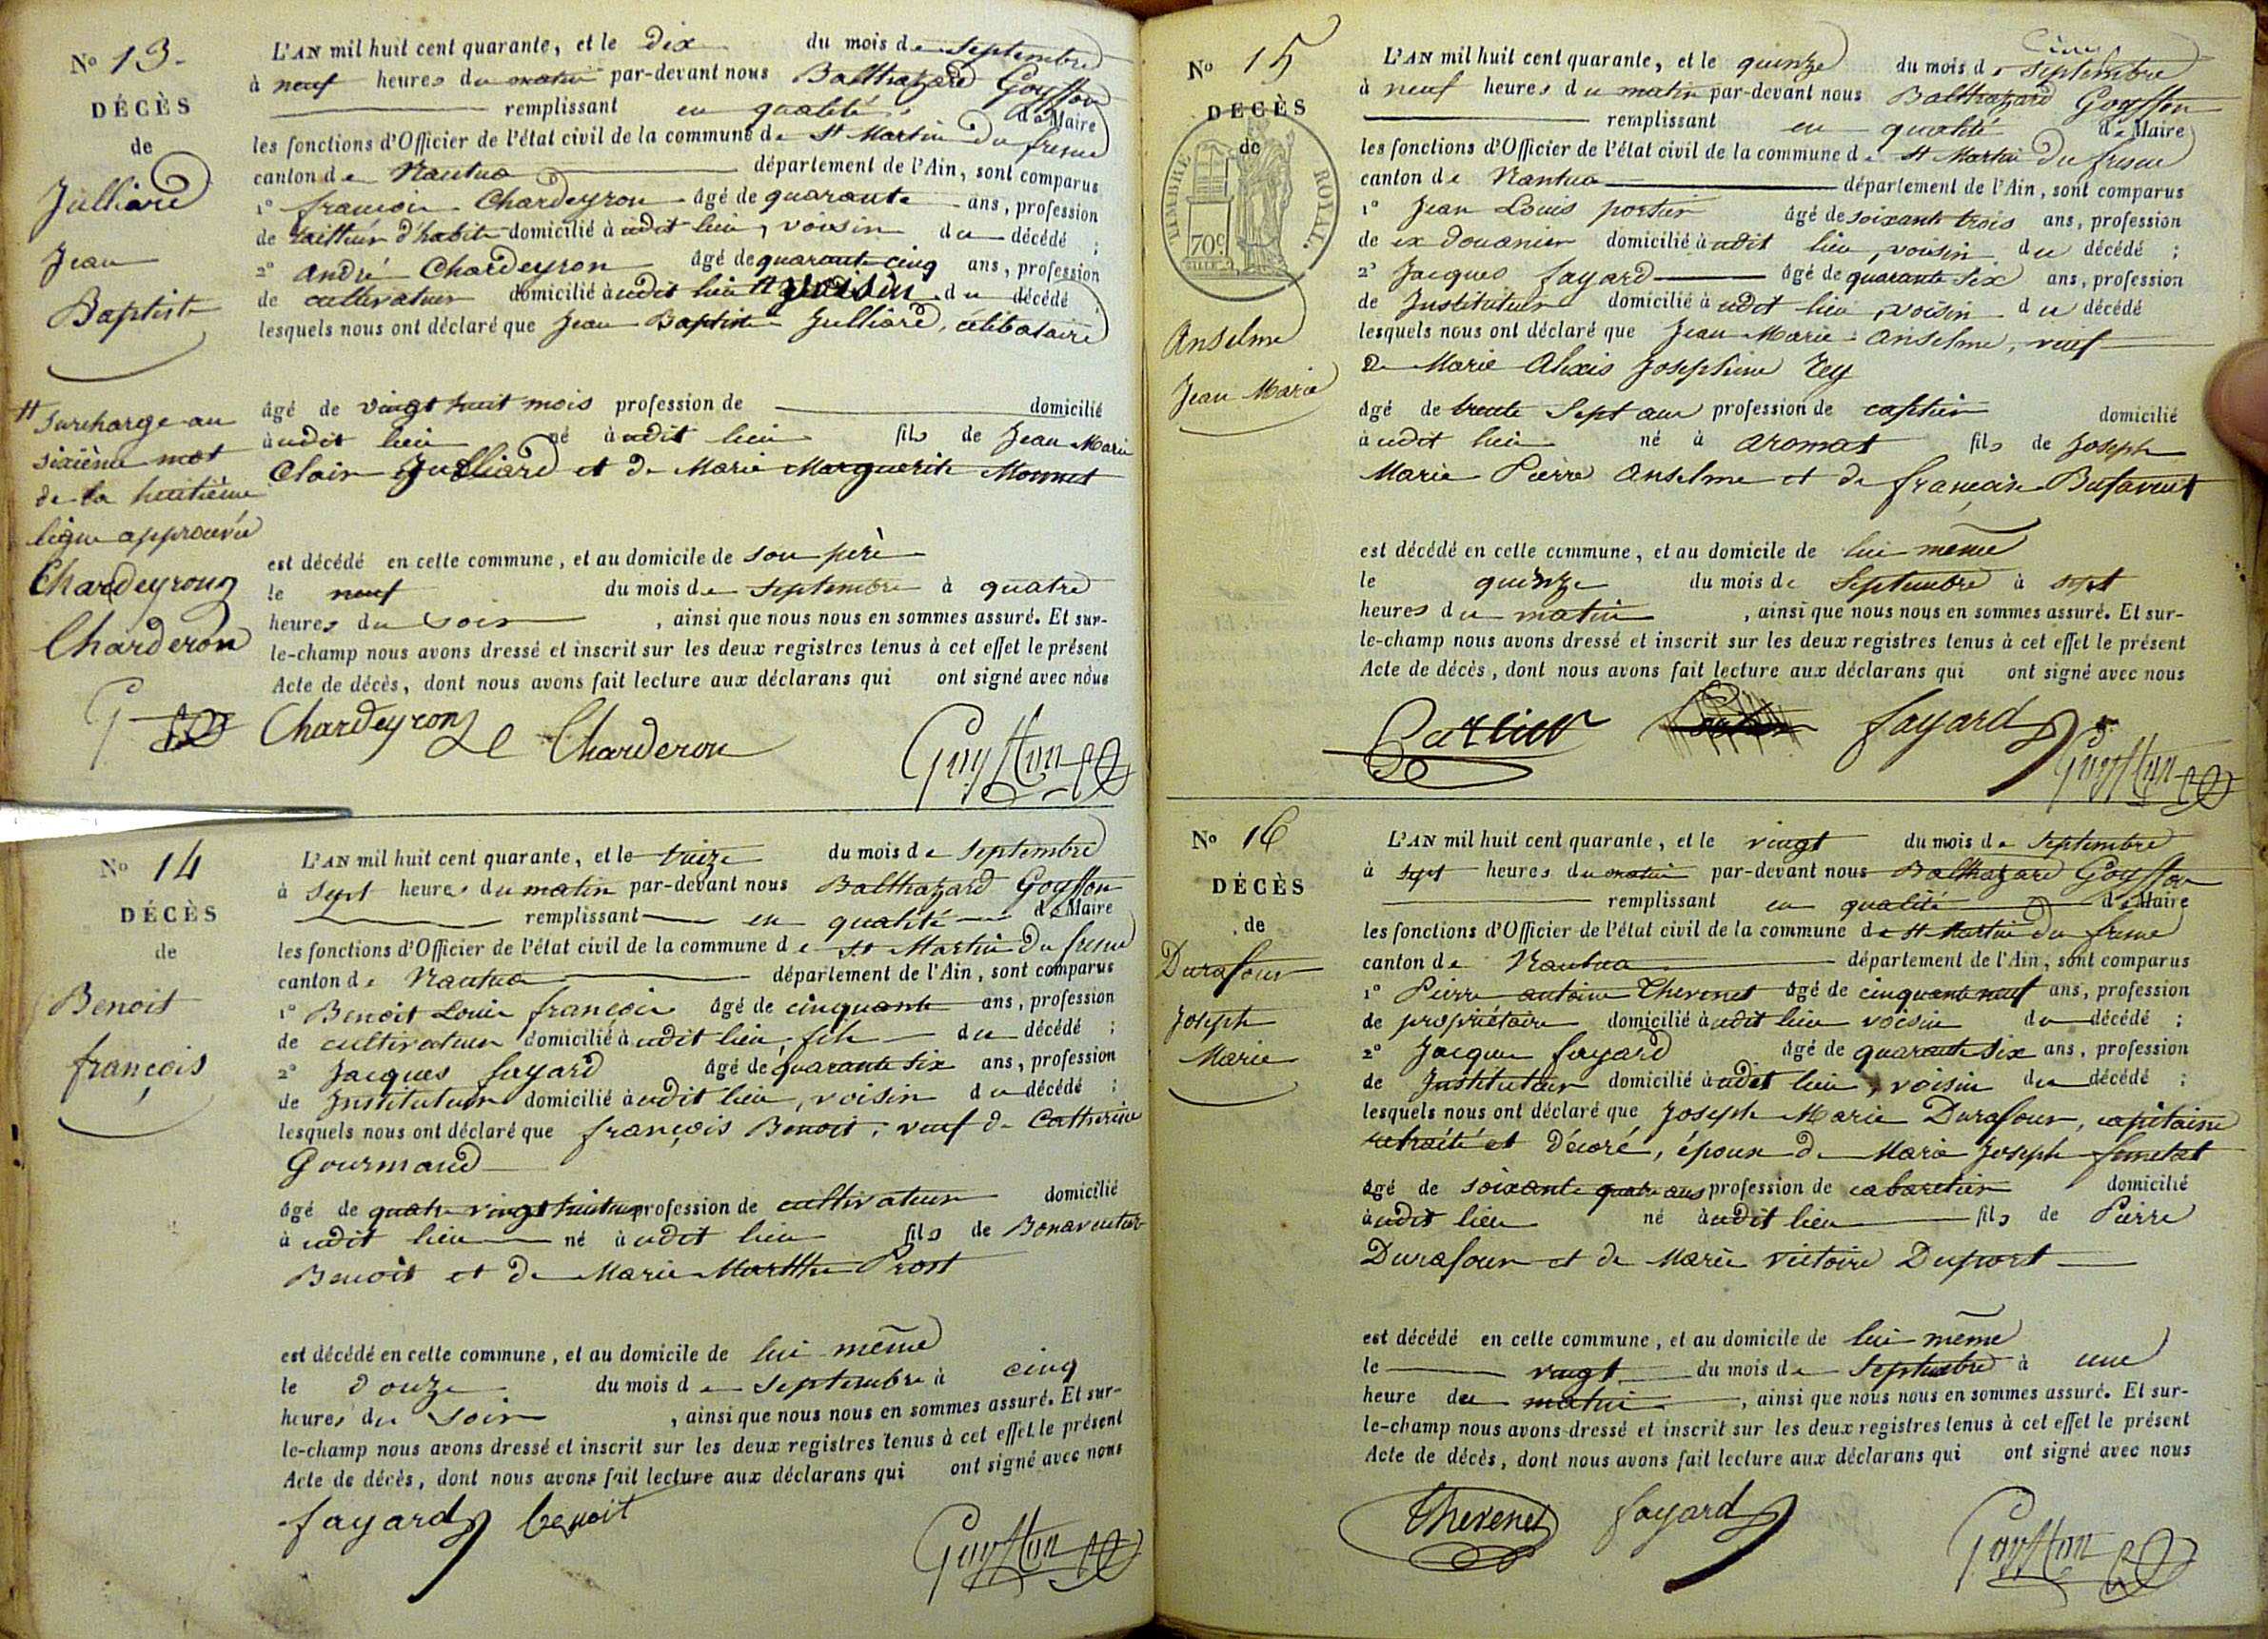 Nº 13.
DÉCÈS
de
Julliard
Jean
Baptiste
H surcharge au
sixième mot
de la huitième
ligne approuvée
Chardeyron
Charderon
L'AN mil huit cent quarante, et le dix du mois de septembre
à neuf heures du matin par-devant nous Balthazard Goyffon
remplissant en qualité de Maire
les fonctions d'Officier de l'état civil de la commune de St Martin Du fresne
canton de Nantua département de l'Ain, sont comparus
1º françois Chardeyron âgé de quarante ans, profession
de tailleur d'habits domicilié à udit lieu, voisin du décédé ;
2º andré Chardeyron âgé de quarante cinq ans, profession
de cultivateur domicilié à udit lieu H voisin du décédé
lesquels nous ont déclaré que Jean Baptiste Julliard, célibataire
âgé de vingt huit mois profession de domicilié
à udit lieu né à udit lieu fils de Jean Marie
Clair Julliard et de Marie Marguerite Monnet
est décédé en cette commune, et au domicile de son père
le neuf du mois de septembre à quatre
heures du soir , ainsi que nous nous en sommes assuré. Et sur-
le-champ nous avons dressé et inscrit sur les deux registres tenus à cet effet le présent
Acte de décès, dont nous avons fait lecture aux déclarans qui ont signé avec nous
Chardeyron Charderon Goyffon
Nº 14
DÉCÈS
de
Benoit
françois
L'AN mil huit cent quarante, et le treize du mois de septembre
à sept heures du matin par-devant nous Balthazard Goyffon
remplissant en qualité de Maire
les fonctions d'Officier de l'état civil de la commune de St Martin Du fresne
canton de Nantua département de l'Ain, sont comparus
1º Benoit Louis françois âgé de cinquante ans, profession
de cultivateur domicilié à udit lieu, fils du décédé ;
2º Jacques fayard âgé de quarante six ans, profession
de Instituteur domicilié à udit lieu, voisin du décédé ;
lesquels nous ont déclaré que françois Benoit, veuf de Catherine
Gourmand
âgé de quatre vingt huit ans profession de cultivateur domicilié
à udit lieu né à udit lieu fils de Bonaventure
Benoit et de Marie Marthe Prost
est décédé en cette commune, et au domicile de lui même
le douze du mois de septembre à cinq
heures du soir , ainsi que nous nous en sommes assuré. Et sur-
le-champ nous avons dressé et inscrit sur les deux registres tenus à cet effet le présent
Acte de décès, dont nous avons fait lecture aux déclarans qui ont signé avec nous
fayard benoit Goyffon
Nº 15
DECÈS
de
TIMBRE ROYAL.
70c
Anselme
Jean Marie
Cinq
L'AN mil huit cent quarante, et le quinze du mois de septembre
à neuf heures du matin par-devant nous Balthazard Goyffon
remplissant en qualité de Maire
les fonctions d'Officier de l'état civil de la commune de St Martin Du fresne
canton de Nantua département de l'Ain, sont comparus
1º Jean Louis portier âgé de soixante trois ans, profession
de ex douanier domicilié à udit lieu, voisin du décédé ;
2º Jacques fayard âgé de quarante six ans, profession
de Instituteur domicilié à udit lieu, voisin du décédé
lesquels nous ont déclaré que Jean Marie Anselme, veuf
De Marie Alexis Joséphine Rey
âgé de trente sept ans profession de domicilié
à udit lieu né à aromas fils de Joseph
Marie Pierre Anselme et de françoise Bufavent
est décédé en cette commune, et au domicile de lui même
le quinze du mois de Septembre à sept
heures du matin , ainsi que nous nous en sommes assuré. Et sur-
le-champ nous avons dressé et inscrit sur les deux registres tenus à cet effet le présent
Acte de décès, dont nous avons fait lecture aux déclarans qui ont signé avec nous
fayard Goyffon
Nº 16
DÉCÈS
de
Durafour
Joseph
Marie
L'AN mil huit cent quarante, et le vingt du mois de septembre
à sept heures du matin par-devant nous Balthazard Goyffon
remplissant en qualité de Maire
les fonctions d'Officier de l'état civil de la commune de St Martin du fresne
canton de Nantua département de l'Ain, sont comparus
1º Pierre antoine Thevenet âgé de cinquante neuf ans, profession
de propriétaire domicilié à udit lieu voisin du décédé ;
2º Jacques fayard âgé de quarante six ans, profession
de Instituteur domicilié à udit lieu, voisin du décédé ;
lesquels nous ont déclaré que Joseph Marie Durafour, capitaine
retraité et Décoré, époux de Marie Joseph
âgé de soixante quatre ans profession de cabaretier domicilié
à udit lieu né à udit lieu fils de Pierre
Durafour et de Marie Victoire Duport
est décédé en cette commune, et au domicile de lui même
le vingt du mois de Septembre à une
heure du matin , ainsi que nous nous en sommes assuré. Et sur-
le-champ nous avons dressé et inscrit sur les deux registres tenus à cet effet le présent
Acte de décès, dont nous avons fait lecture aux déclarans qui ont signé avec nous
Thevenet fayard Goyffon